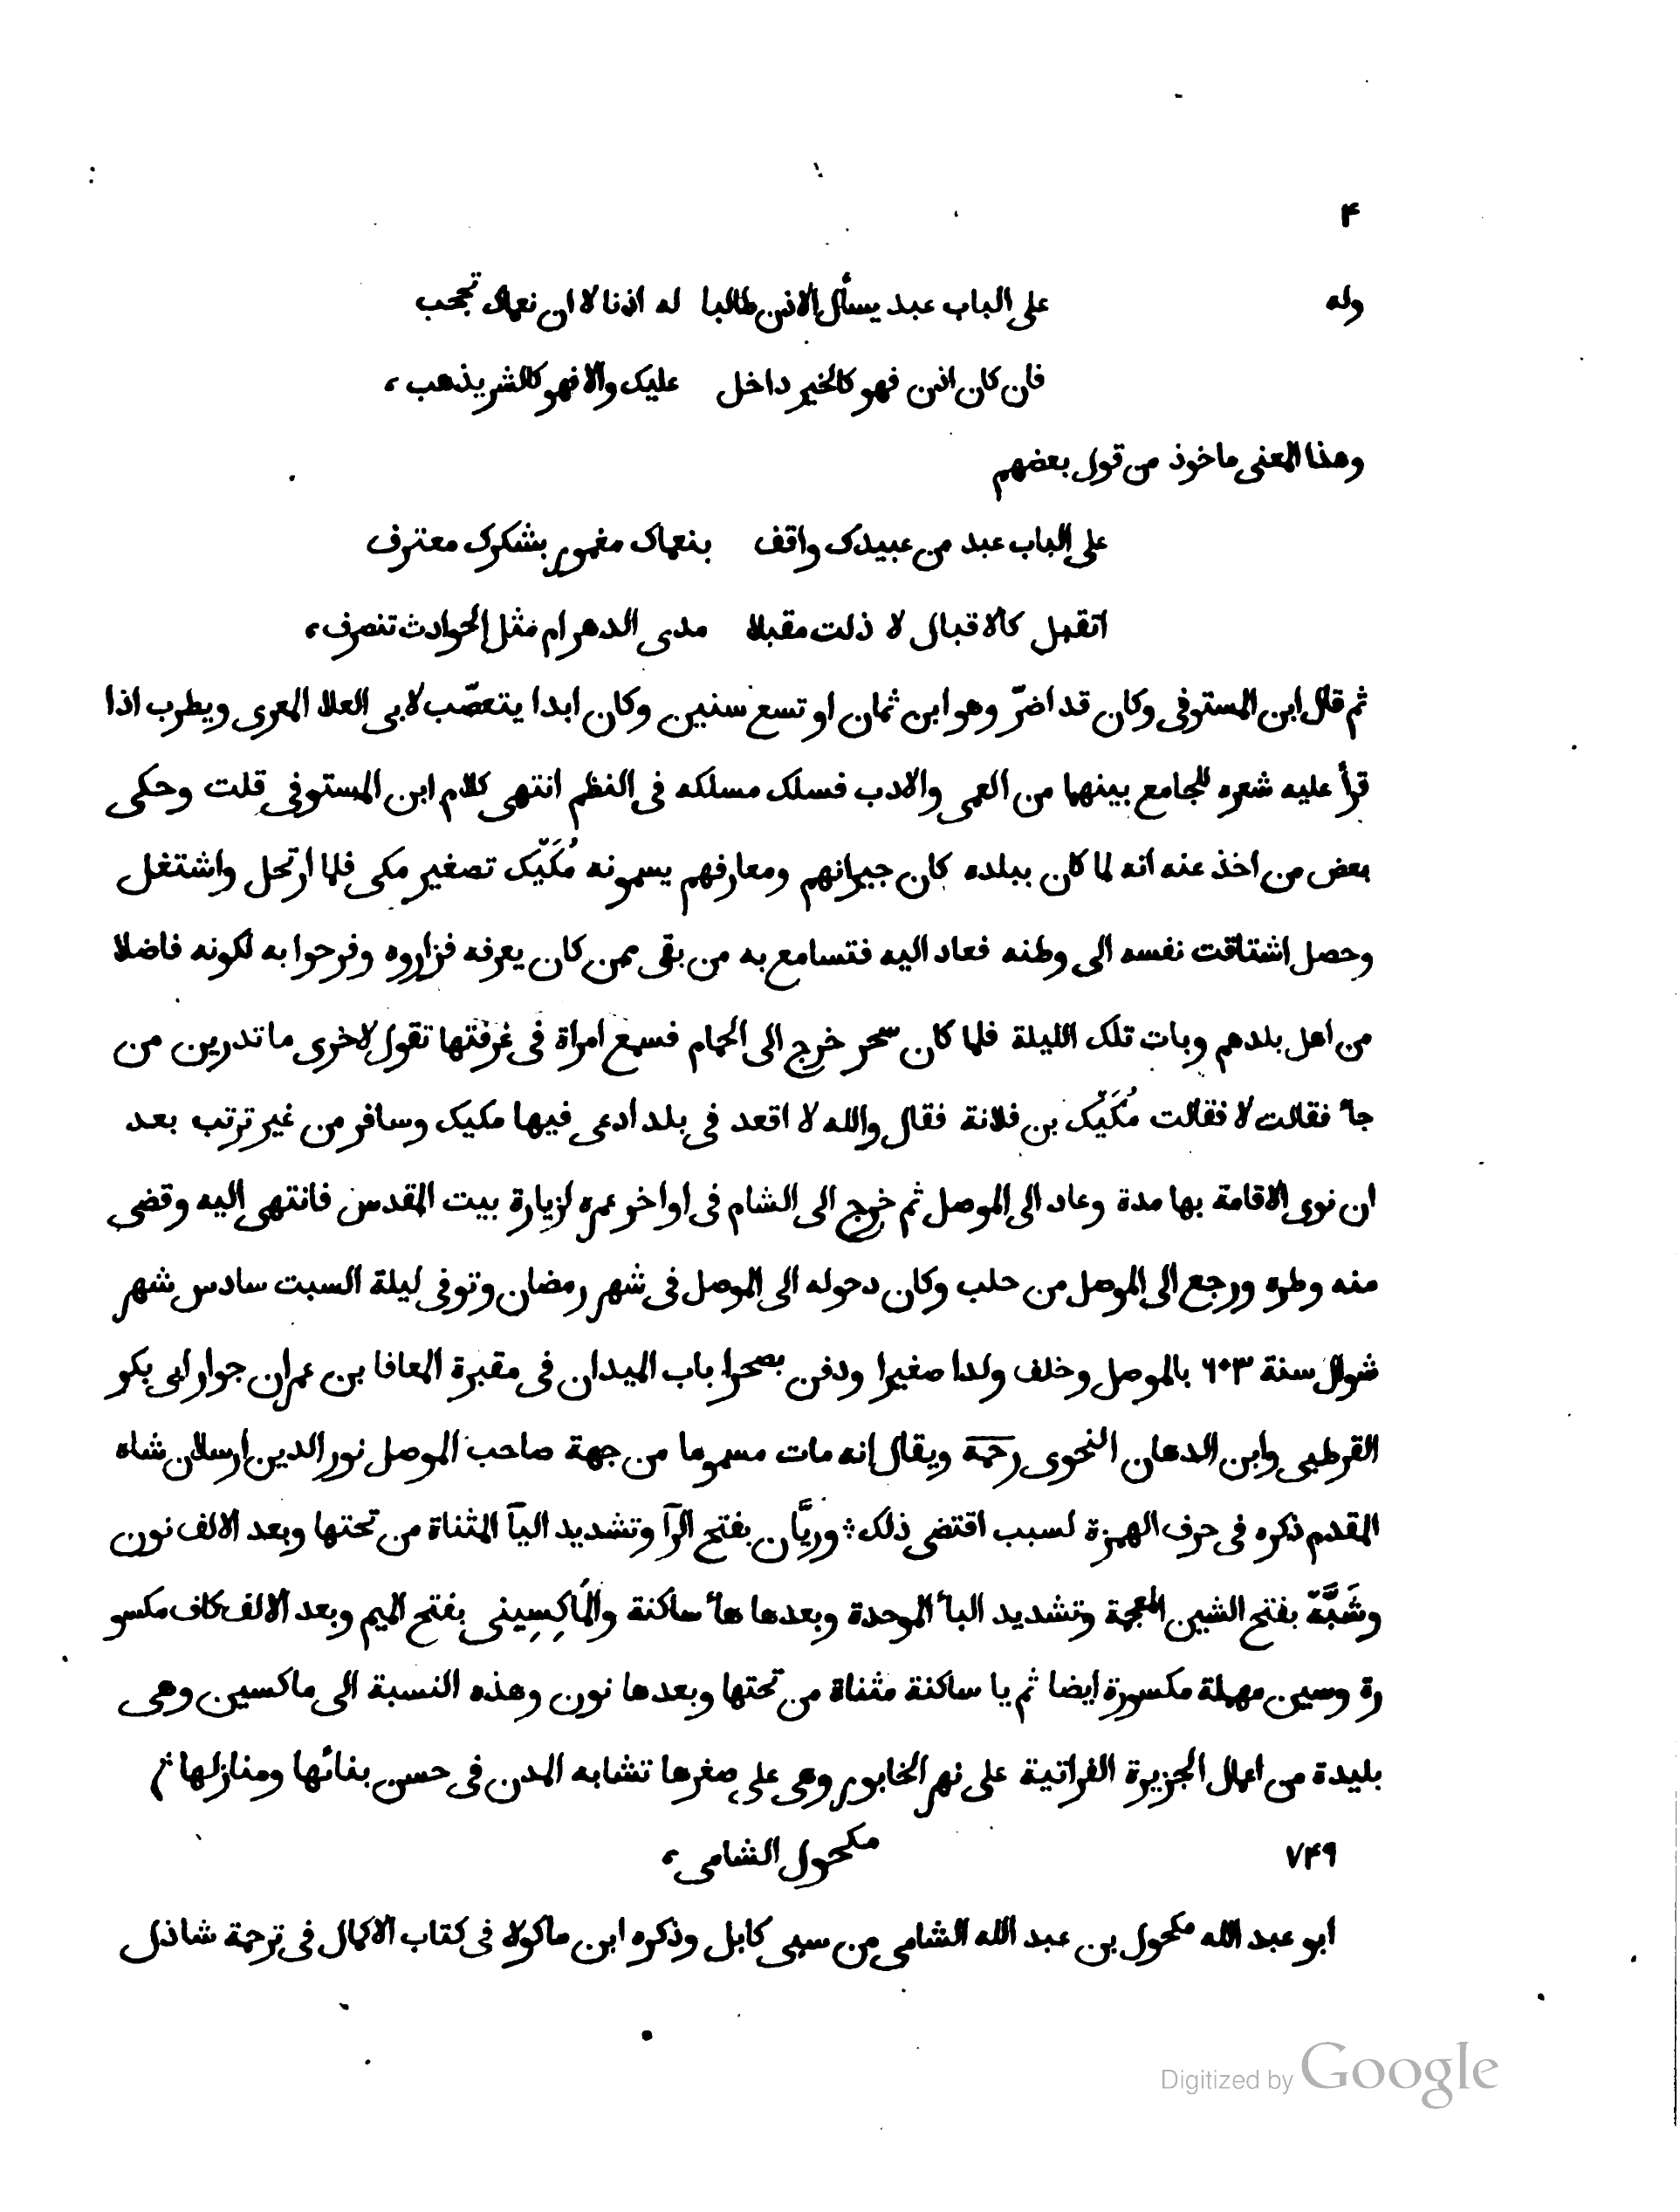 ۴
وله على الباب عبد يسأل الاذن طالبا له اذنا لا ان نعماك تحجب
فان كان اذن فهو كالخير داخل عليك والا فهو كالشر يذهب،
وهذا المعنى ماخوذ من قول بعضهم
على الباب عبد من عبيدك واقف بنعماك مغمور بشكرك معترف
اتقبل كالاقبال لا ذلت مقبلا مدى الدهر ام مثل الحوادث تنصرف،
ثم قال ابن المستوفى وكان قد اضرّ وهو ابن ثمان او تسع سنين وكان ابدا يتعصّب لابى العلا المعرى ويطرب اذا
قرأ عليه شعره للجامع بينهما من العمى والادب فسلك مسلكه فى النظم انتهى كلام ابن المستوفى قلت وحكى
بعض من اخذ عنه انه لما كان ببلده كان جيرانهم ومعارفهم يسمونه مُكَيّك تصغير مكى فلما ارتحل واشتغل
وحصل اشتاقت نفسه الى وطنه فعاد اليه فتسامع به من بقى ممن كان يعرفه فزاروه وفرحوا به لكونه فاضلا
من اهل بلدهم وبات تلك الليلة فلما كان سحر خرج الى الحمام فسمع امراة فى غرفتها تقول لاخرى ما تدرين من
جآ فقالت لا فقالت مُكَيّك بن فلانة فقال والله لا اقعد فى بلد ادعى فيها مكيك وسافر من غير ترتب بعد
ان نوى الاقامة بها مدة وعاد الى الموصل ثم خرج الى الشام فى اواخر عمره لزيارة بيت المقدس فانتهى اليه وقضى
منه وطره ورجع الى الموصل من حلب وكان دحوله الى الموصل فى شهر رمضان وتوفى ليلة السبت سادس شهر
شوال سنة ٦٠٣ بالموصل وخلف ولدا صغيرا ودفن بصحرا باب الميدان فى مقبرة المعافا بن عمران جوار ابى بكر
القرطبى وابن الدهان النحوى رحمة ويقال انه مات مسموما من جهة صاحب الموصل نور الدين ارسلان شاه
المقدم ذكره فى حرف الهمزة لسبب اقتضى ذلك ؛ وريَّان بفتح الرآ وتشديد اليآ المثناة من تحتها وبعد الالف نون
وشَبَّة بفتح الشين المعجمة وتشديد البآ الموحدة وبعدها هآ ساكنة والمَاكِسِينى بفتح الميم وبعد الالف كاف مكسو
رة وسين مهملة مكسورة ايضا ثم يا ساكنة مثناة من تحتها وبعدها نون وهذه النسبة الى ماكسين وهى
بليدة من اعمال الجزيرة الفراتية على نهر الخابور وهى على صغرها تشابه المدن فى حسن بنائها ومنازلها ثم
٧۴٩ مكحول الشامى،
ابو عبد الله مكحول بن عبد الله الشامى من سبى كابل وذكره ابن ماكولا فى كتاب الاكمال فى ترجمة شاذل
Digitized by Google